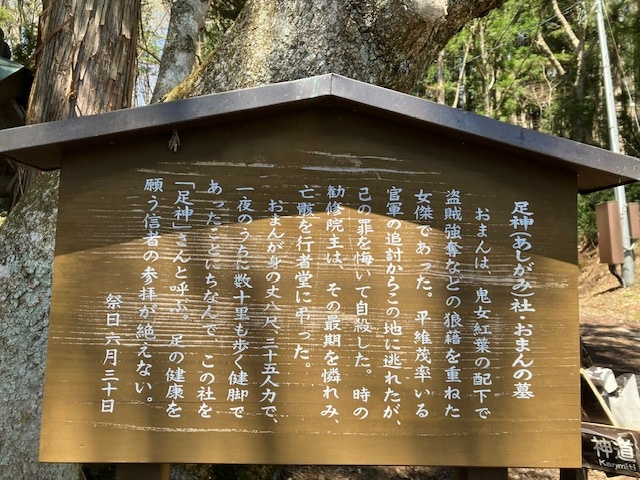 足神(あしがみ)社・おまんの墓
おまんは、鬼女紅葉の配下で
盗賊強奪などの狼藉を重ねた
女傑であった。平維茂率いる
官軍の追討からこの地に逃れたが、
己の罪を悔いて自殺した。時の
勧修院主は、その最期を憐れみ、
亡骸を行者堂に弔った。
おまんが身の丈八尺、三十五人力で、
一夜のうちに数十里も歩く健脚で
あったことにちなんで、この社を
「足神」さんと呼ぶ。足の健康を
願う信者の参拝が絶えない。
祭日六月三十日
神道
Kanmiti